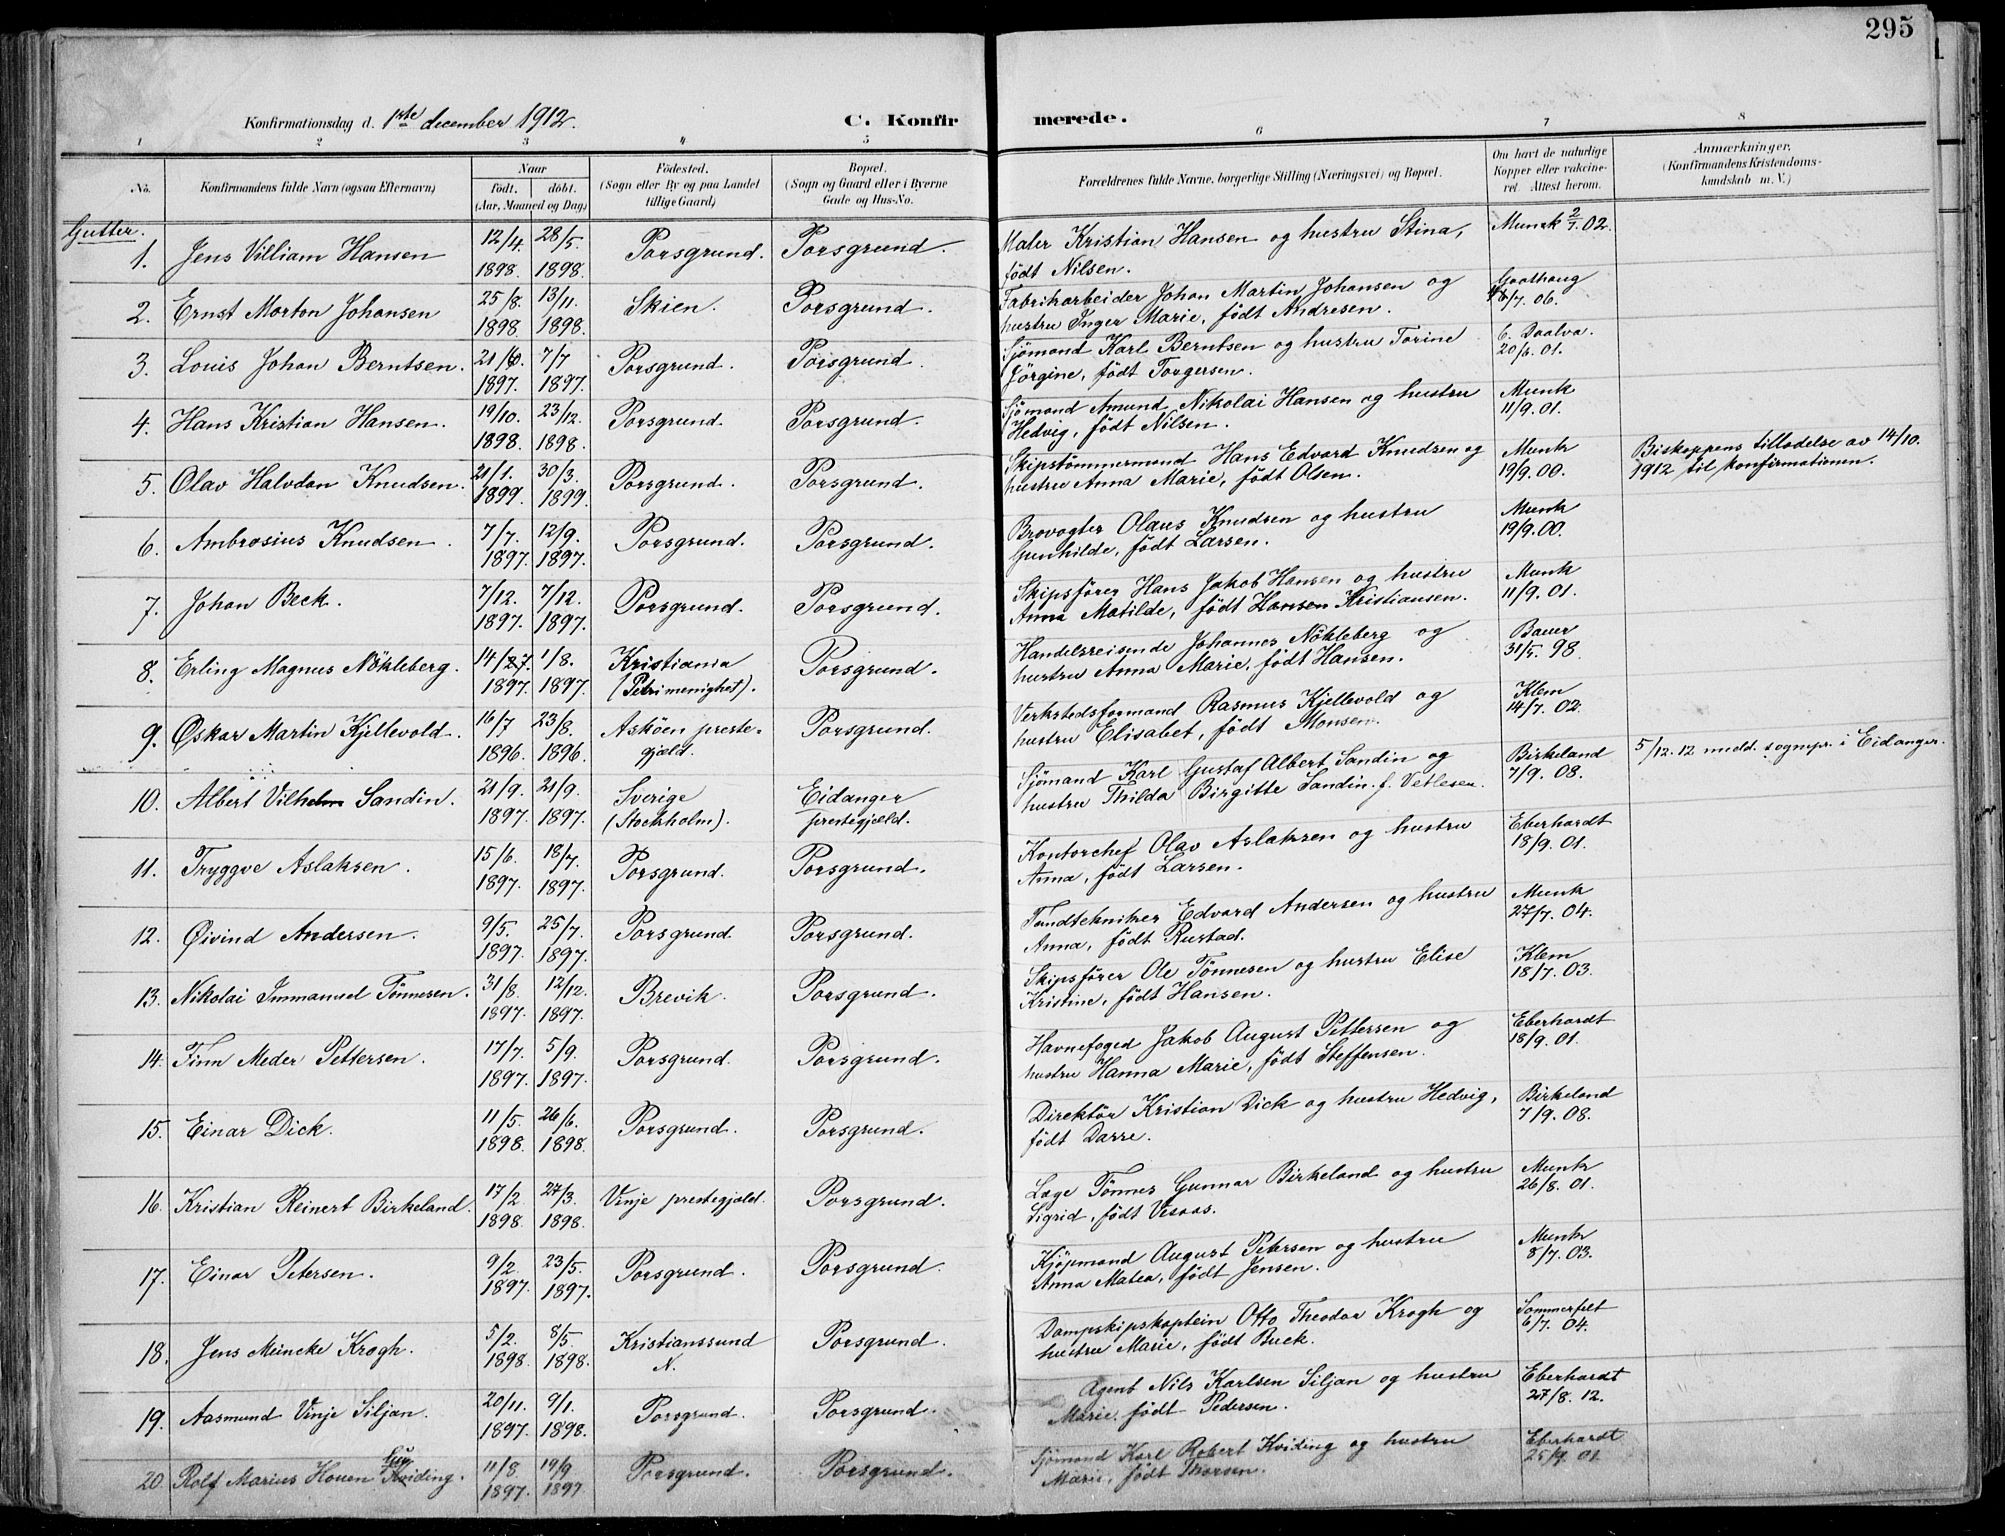 295
Konfirmationsdag d. 1ste december 1912.
C. Konfirmerede.
1 2 3 4 5 6 7 8
No. Konfirmandens fulde Navn (ogsaa Efternavn) Naar født. døbt. (Aar, Maaned og Dag) Födested. (Sogn eller By og paa Landet tillige Gaard) Bopæl. (Sogn og Gaard eller i Byerne Gade og Hus-No. Forældrenes fulde Navne, borgerlige Stilling (Næringsvei) og Bopæl. Om havt de naturlige Kopper eller vakcineret. Attest herom. Anmærkninger. (Konfirmandens Kristendomskundskab m. V.)
Gutter.
1. Jens Villiam Hansen 12/4 1898. 28/5. 1898. Porsgrund. Porsgrund. Maler Kristian Hansen og hustru Stina, født Nilsen. Munk 2/7. 02.
2. Ernst Morton Johansen 25/8. 1898. 13/11. 1898. Skien. Porsgrund. Fabrikarbeider Johan Martin Johansen og hustru Inger Marie, født Andresen. Gaathaug /7. 06.
3. Louis Johan Berntsen. 21/6. 1897. 7/7 1897. Porsgrund. Porsgrund. Sjömand Karl Berntsen og hustru Torine Jörgine, født Torgersen. E. Daalva. 20/6. 01.
4. Hans Kristian Hansen. 19/10. 1898. 23/12. 1898. Porsgrund. Porsgrund. Sjömand Amund Nikolai Hansen og hustru Hedvig, født Nilsen. Munk 11/9. 01.
5. Olav Halvdan Knudsen. 21/1. 1899. 30/3. 1899. Porsgrund. Porsgrund. Skipstömmermand Hans Edvard Knudsen og hustru Anna Marie, født Olsen. Munk 19/9. 00. Biskoppens tilladelse av 14/10. 1912 til konfirmationen.
6. Ambrosius Knudsen. 7/7. 1897. 12/9. 1897. Porsgrund. Porsgrund. Brovogter Olaus Knudsen og hustru Gunhilde, født Larsen. Munk 19/9. 00.
7. Johan Beck. 7/12. 1897. 7/12. 1897. Porsgrund. Porsgrund. Skipsförer Hans Jakob Hansen og hustru Anna Matilde, født Hansen Kristiansen. Munk 11/9. 01.
8. Erling Magnus Nökleberg. 14/7. 1897. 1/8. 1897. Kristiania (Petri menighet). Porsgrund. Handelsreisende Johannes Nökleberg og hustru Anna Marie, født Hansen. Bauer 31/5. 98.
9. Oskar Martin Kjellevold. 16/7 1896. 23/8. 1896. Asköen prestegjæld. Porsgrund. Verkstedsformand Rasmus Kjellevold og hustru Elisabet, født Monsen. Klem 14/7. 02.
10. Albert Vilhelm Sandin. 21/9. 1897. 21/9. 1897. Sverige (Stockholm). Eidanger prestegjæld. Sjömand Karl Gustaf Albert Sandin og hustru Thilda Birgitte Sandin. f. Vetlesen. Birkeland 7/9. 08. 5/12. 12 medd. sognepr. i Eidanger.
11. Tryggve Aslaksen. 15/6. 1897. 18/7. 1897. Porsgrund. Porsgrund. Kontorchef Olav Aslaksen og hustru Anna, født Larsen. Eberhardt 18/9. 01.
12. Øivind Andersen. 9/5. 1897. 25/7. 1897. Porsgrund. Porsgrund. Tandtekniker Edvard Andersen og hustru Anna, født Rustad. Munk 27/7. 04.
13. Nikolai Immanuel Tönnesen. 31/8. 1897. 12/12. 1897. Brevik. Porsgrund. Skipsförer Ole Tönnesen og hustru Elise Kristine, født Hansen. Klem 18/7. 03.
14. Finn Meder Pettersen. 17/7. 1897. 5/9. 1897. Porsgrund. Porsgrund. Havnefoged Jakob August Pettersen og hustru Hanna Marie, født Steffensen. Eberhardt 18/9. 01.
15. Einar Dick. 11/5. 1898. 26/6. 1898. Porsgrund. Porsgrund. Direktör Kristian Dick og hustru Hedvig, født Darre. Birkeland 7/9. 08.
16. Kristian Reinert Birkeland. 17/2 1898. 27/3. 1898. Vinje prestegjæld. Porsgrund. Læge Tönnes Gunnar Birkeland og hustru Sigrid, født Vesaas. Munk 26/8. 01.
17. Einar Petersen. 9/2. 1897. 23/5. 1897. Porsgrund. Porsgrund. Kjöpmand August Petersen og hustru Anna Matea, født Jensen. Munk 8/7. 03.
18. Jens Meincke Krogh. 5/2. 1898. 8/5. 1898. Kristianssund N. Porsgrund. Dampskipskaptein Otto Theodor Krogh og hustru Marie, født Buck. Sommerfelt 6/7. 04.
19. Aasmund Vinje Siljan. 20/11. 1897. 9/1. 1898. Porsgrund. Porsgrund. Agent Nils Karlsen Siljan og hustru Marie, født Pedersen. Eberhardt 27/8. 12.
20. Rolf Marius Houen Kviding. 11/8. 1897. 19/9 1897 Porsgrund. Porsgrund. Sjömand Karl Robert Kviding og hustru Marie, født Thorsen. Eberhardt 25/9. 01